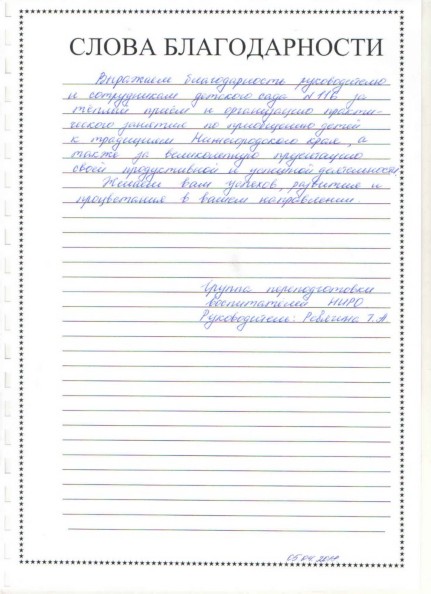 СЛОВА БЛАГОДАРНОСТИ
Выражаем благодарность руководителю
и сотрудникам детского сада №116 за
теплый приём и организацию практи-
ческого занятия по приобщению детей
к традициям Нижегородского края, а
также за великолепную презентацию
своей продуктивной и успешной деятельности.
Желаем вам успехов, развития и
процветания в вашем направлении.
Группа переподготовки
воспитателей НИРО
Руководитель:
05.04